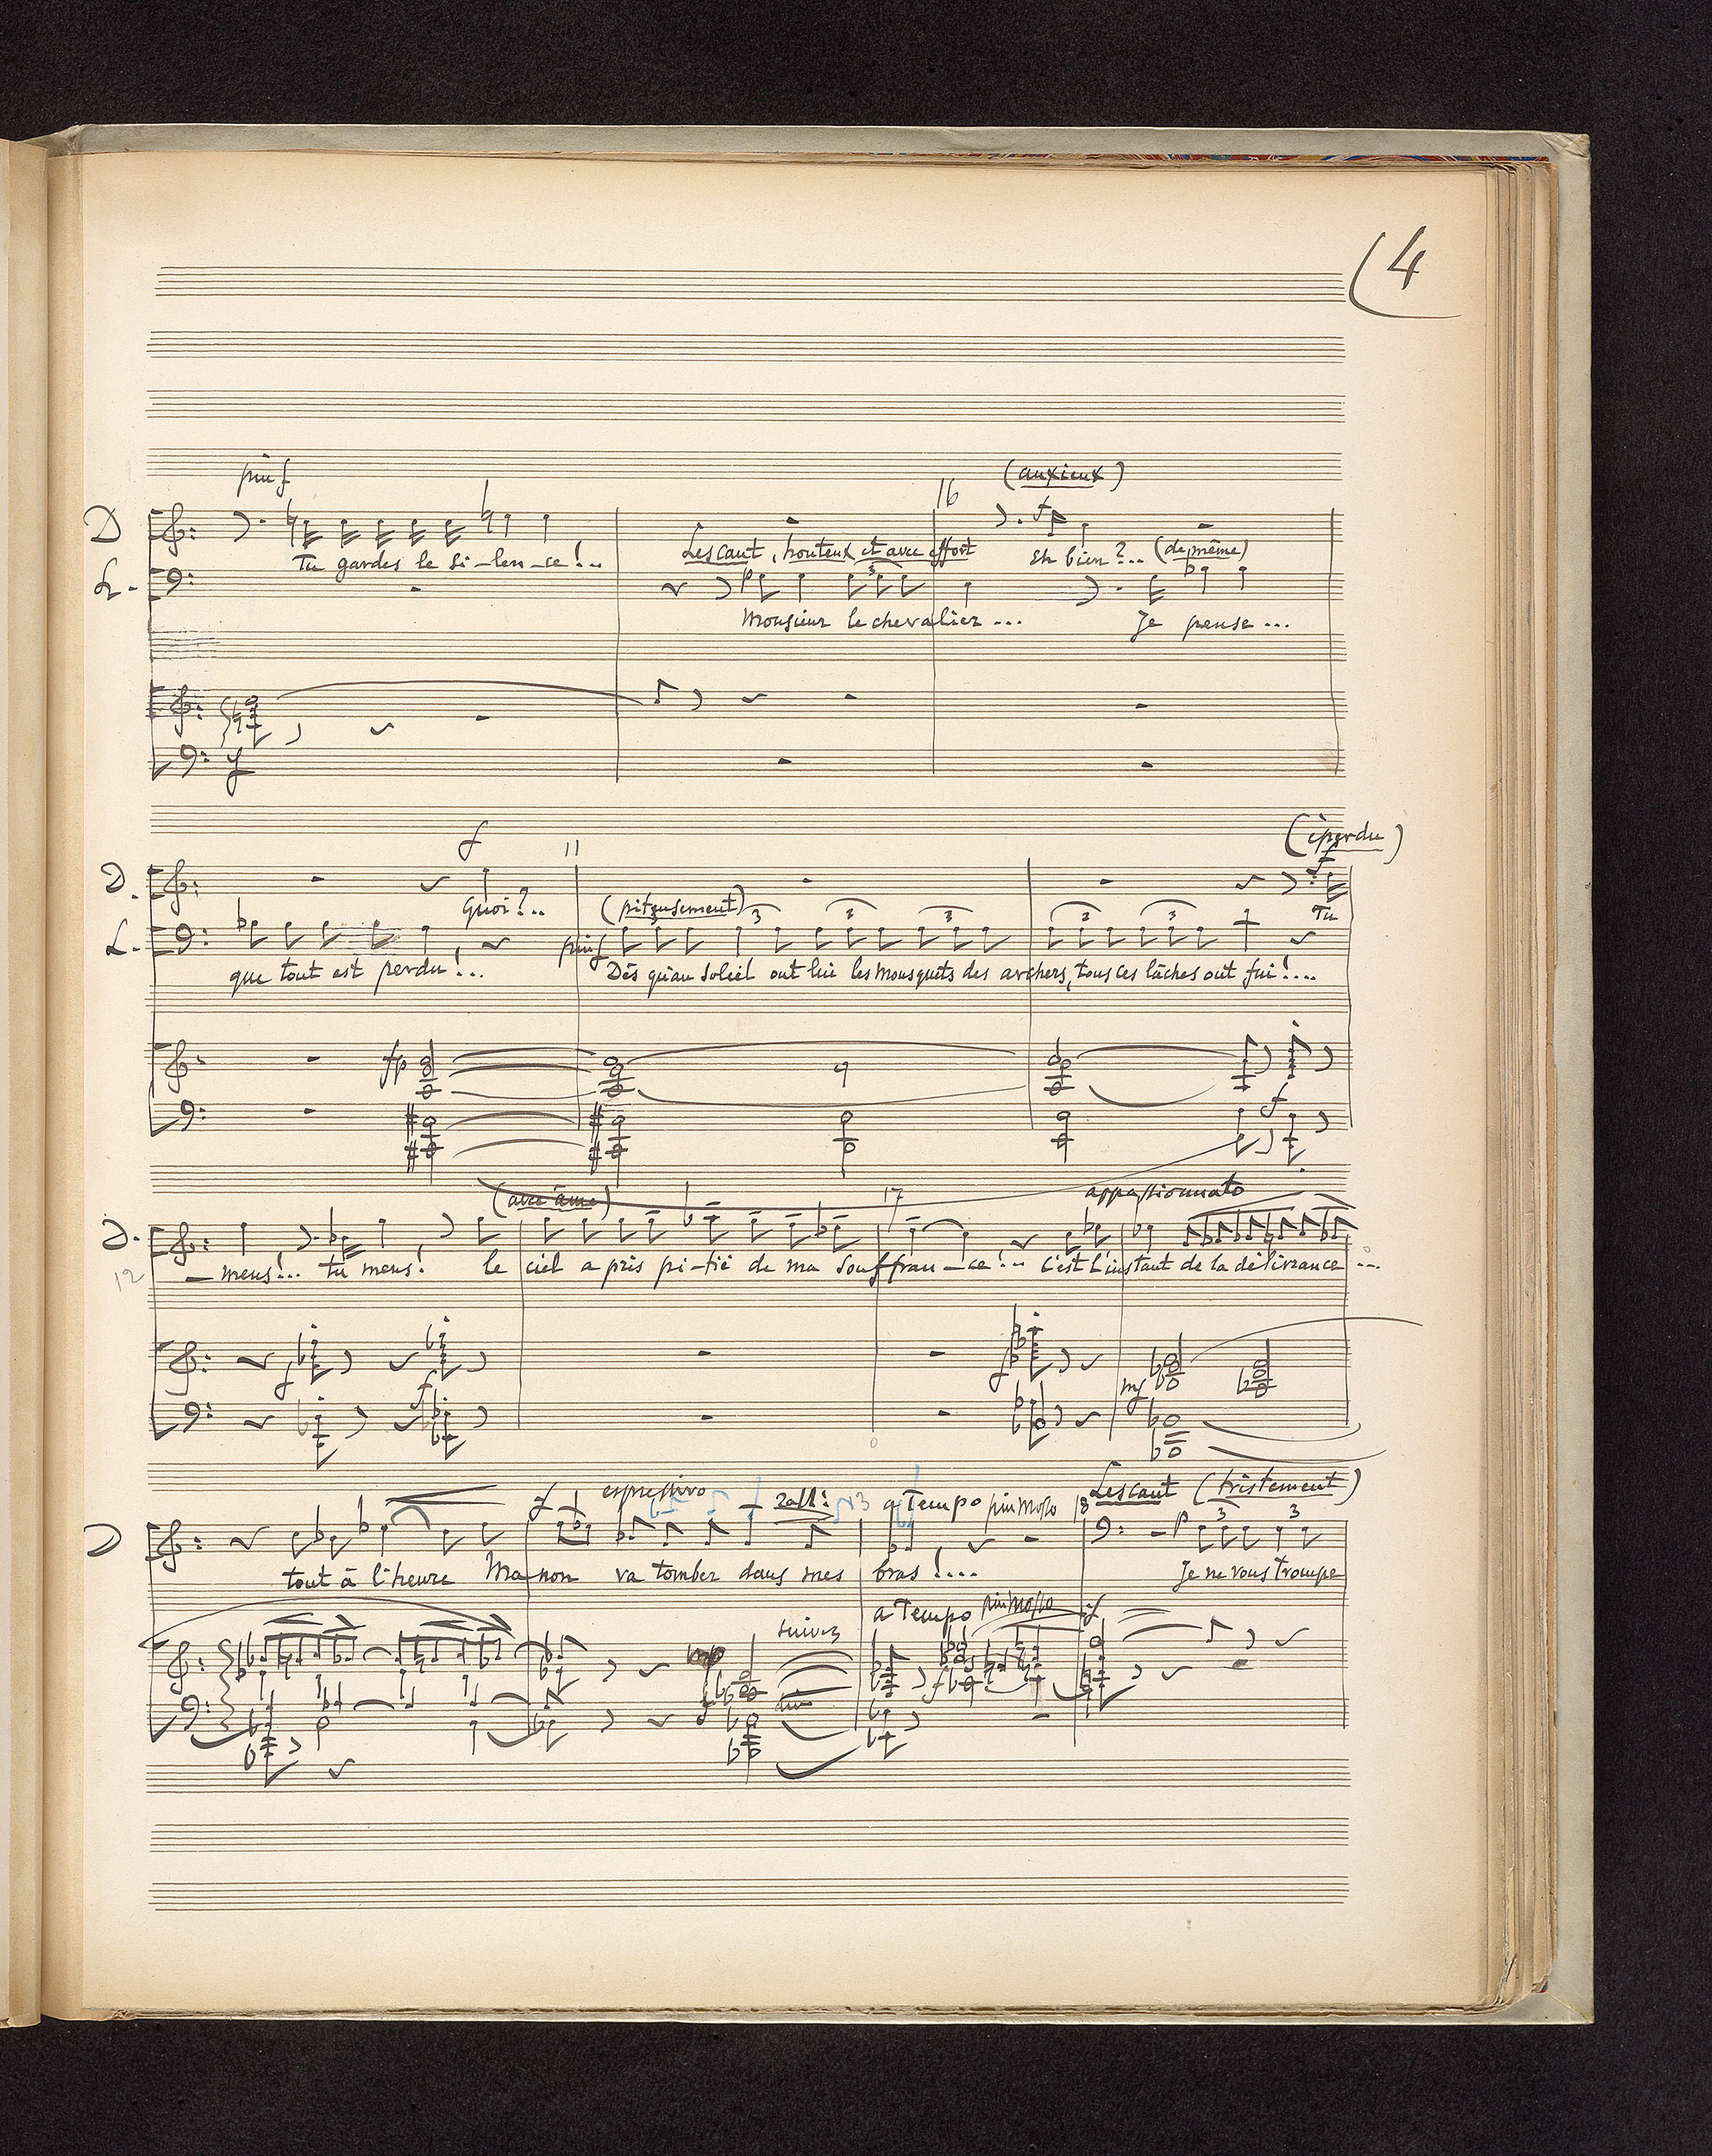 (4
più f
16
(anxieux)
D
f
Tu gardes le si-len-ce!..
Lescaut, honteux et avec effort
Eh bien?...
(de même)
L.
p
3
Monsieur le chevalier ...
Je pense ...
f
(éperdu)
f
11
f
D.
Quoi?..
(piteusement)
3 3 3 3 3
Tu
L.
più f
que tout est perdu!...
Dès qu'au soleil ont lui les mousquets des archers, tous ces lâches ont fui!....
fp
f
(avec âme)
17
appassionnato
D.
12
- mens!... tu mens! le ciel a pris pi-tié de ma souffran-ce!.. C'est l'instant de la délivrance ...
f
f
f
mf
f
espressivo
rall:
13
a Tempo
più mosso
18
Lescaut (tristement)
D
p
3
3
tout à l'heure Manon va tomber dans mes bras!....
Je ne vous trompe
a Tempo
più mosso
suivez
f